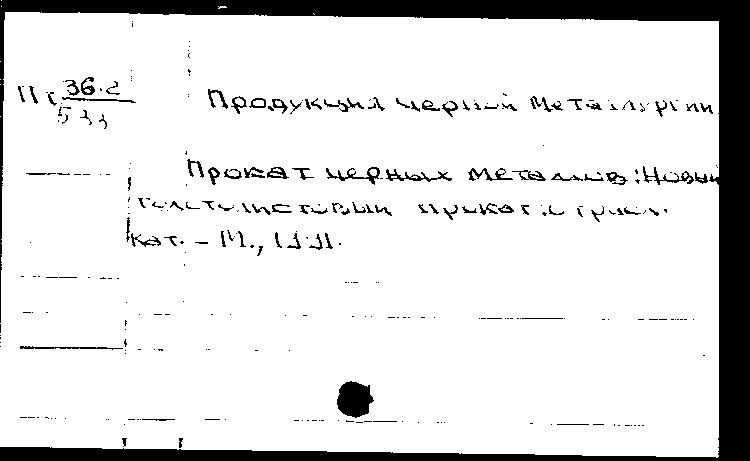 36.2
Продукция черной металлургии
533
Прокат черных металлов: Новый
толстолистовый прокат:
кат. - М.,